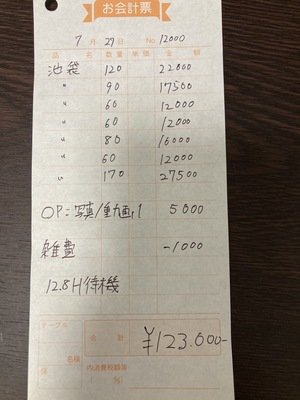 お会計票
7月29日 No 12000
品名 数量 単価 金額
池袋 120 22000
〃 90 17500
〃 60 12000
〃 60 12000
〃 80 16000
〃 60 12000
〃 170 27500
OP:写真/動画,1 5000
雑費 -1000
12.8H待機
テーブル
合計 ¥123.000-
名様
内消費税額等
( %)